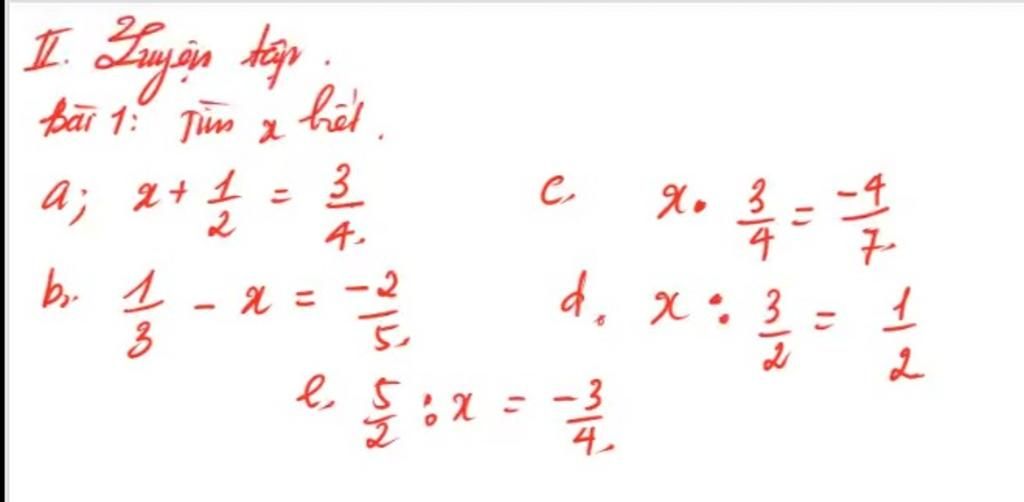 II. Luyện tập.
Bài 1: Tìm x biết.
a; x + 1/2 = 3/4.
c. x . 3/4 = -4/7.
b. 1/3 - x = -2/5.
d. x : 3/2 = 1/2
e. 5/2 : x = -3/4.